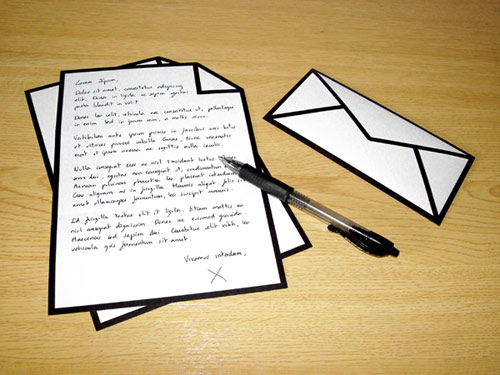 Lorem Ipsum,
Dolor sit amet, consectetur adipiscing
elit. Donec in ligula ac sapien egestas
porta blandit in velit.
Donec leo velit, vehicula nec consectetur et, pellentesque
in enim. Sed in ipsum sem, a mattis nisi.
Vestibulum ante ipsum primis in faucibus orci luctus
et ultrices posuere cubilia Curae; Nunc venenatis
erat et ipsum viverra ac sagittis nulla iaculis.
Nulla consequat sem ac nisl tincidunt luctus
orci dui, egestas non consequat ut, condimentum
Aenean pulvinar pharetra leo placerat interdum.
Cras aliquam mi in fringilla. Mauris aliquet, felis sit
amet ullamcorper fermentum, leo suscipit mauris.
Id fringilla tortor elit et ligula. Etiam mattis ex
nisl consequat dignissim. Donec ac euismod gravida.
Maecenas sed sapien dui. Curabitur velit nibh, leo
vehicula quis fermentum sit amet.
Vivamus interdum,
X